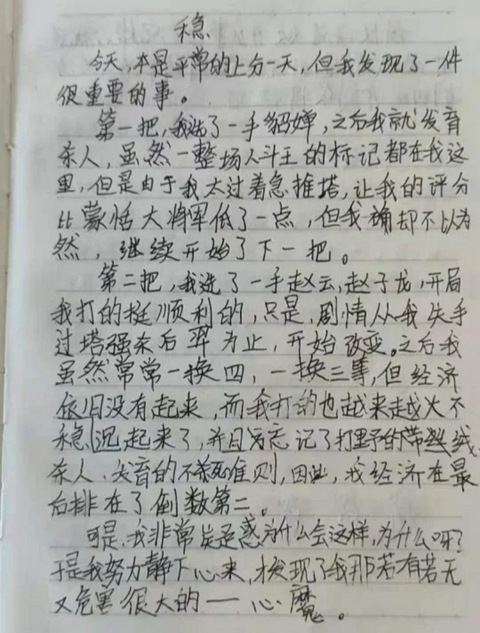 稳
今天,本是平常的上分一天,但我发现了一件
很重要的事。
第一把,我选了一手貂蝉,之后我就发育
杀人,虽然一整场人斗王的标记都在我这
里,但是由于我太过着急推塔,让我的评分
比蒙恬大将军低了一点,但我确却不以为
然,继续开始了下一把。
第二把,我选了一手赵云,赵子龙,开局
我打的挺顺利的,只是,剧情从我失手
过塔强杀后羿为止,开始改变。之后我
虽然常常一换四,一换三等,但经济
依旧没有起来,而我打的也越来越火不
稳起来了,并且忘记了打野的带线
杀人、发育的不死准则,因此,我经济在最
后排在了倒数第二。
可是,我非常疑惑为什么会这样,为什么呀?
于是我努力静下心来,才发现了我那若有若无
又危害很大的——心魔。